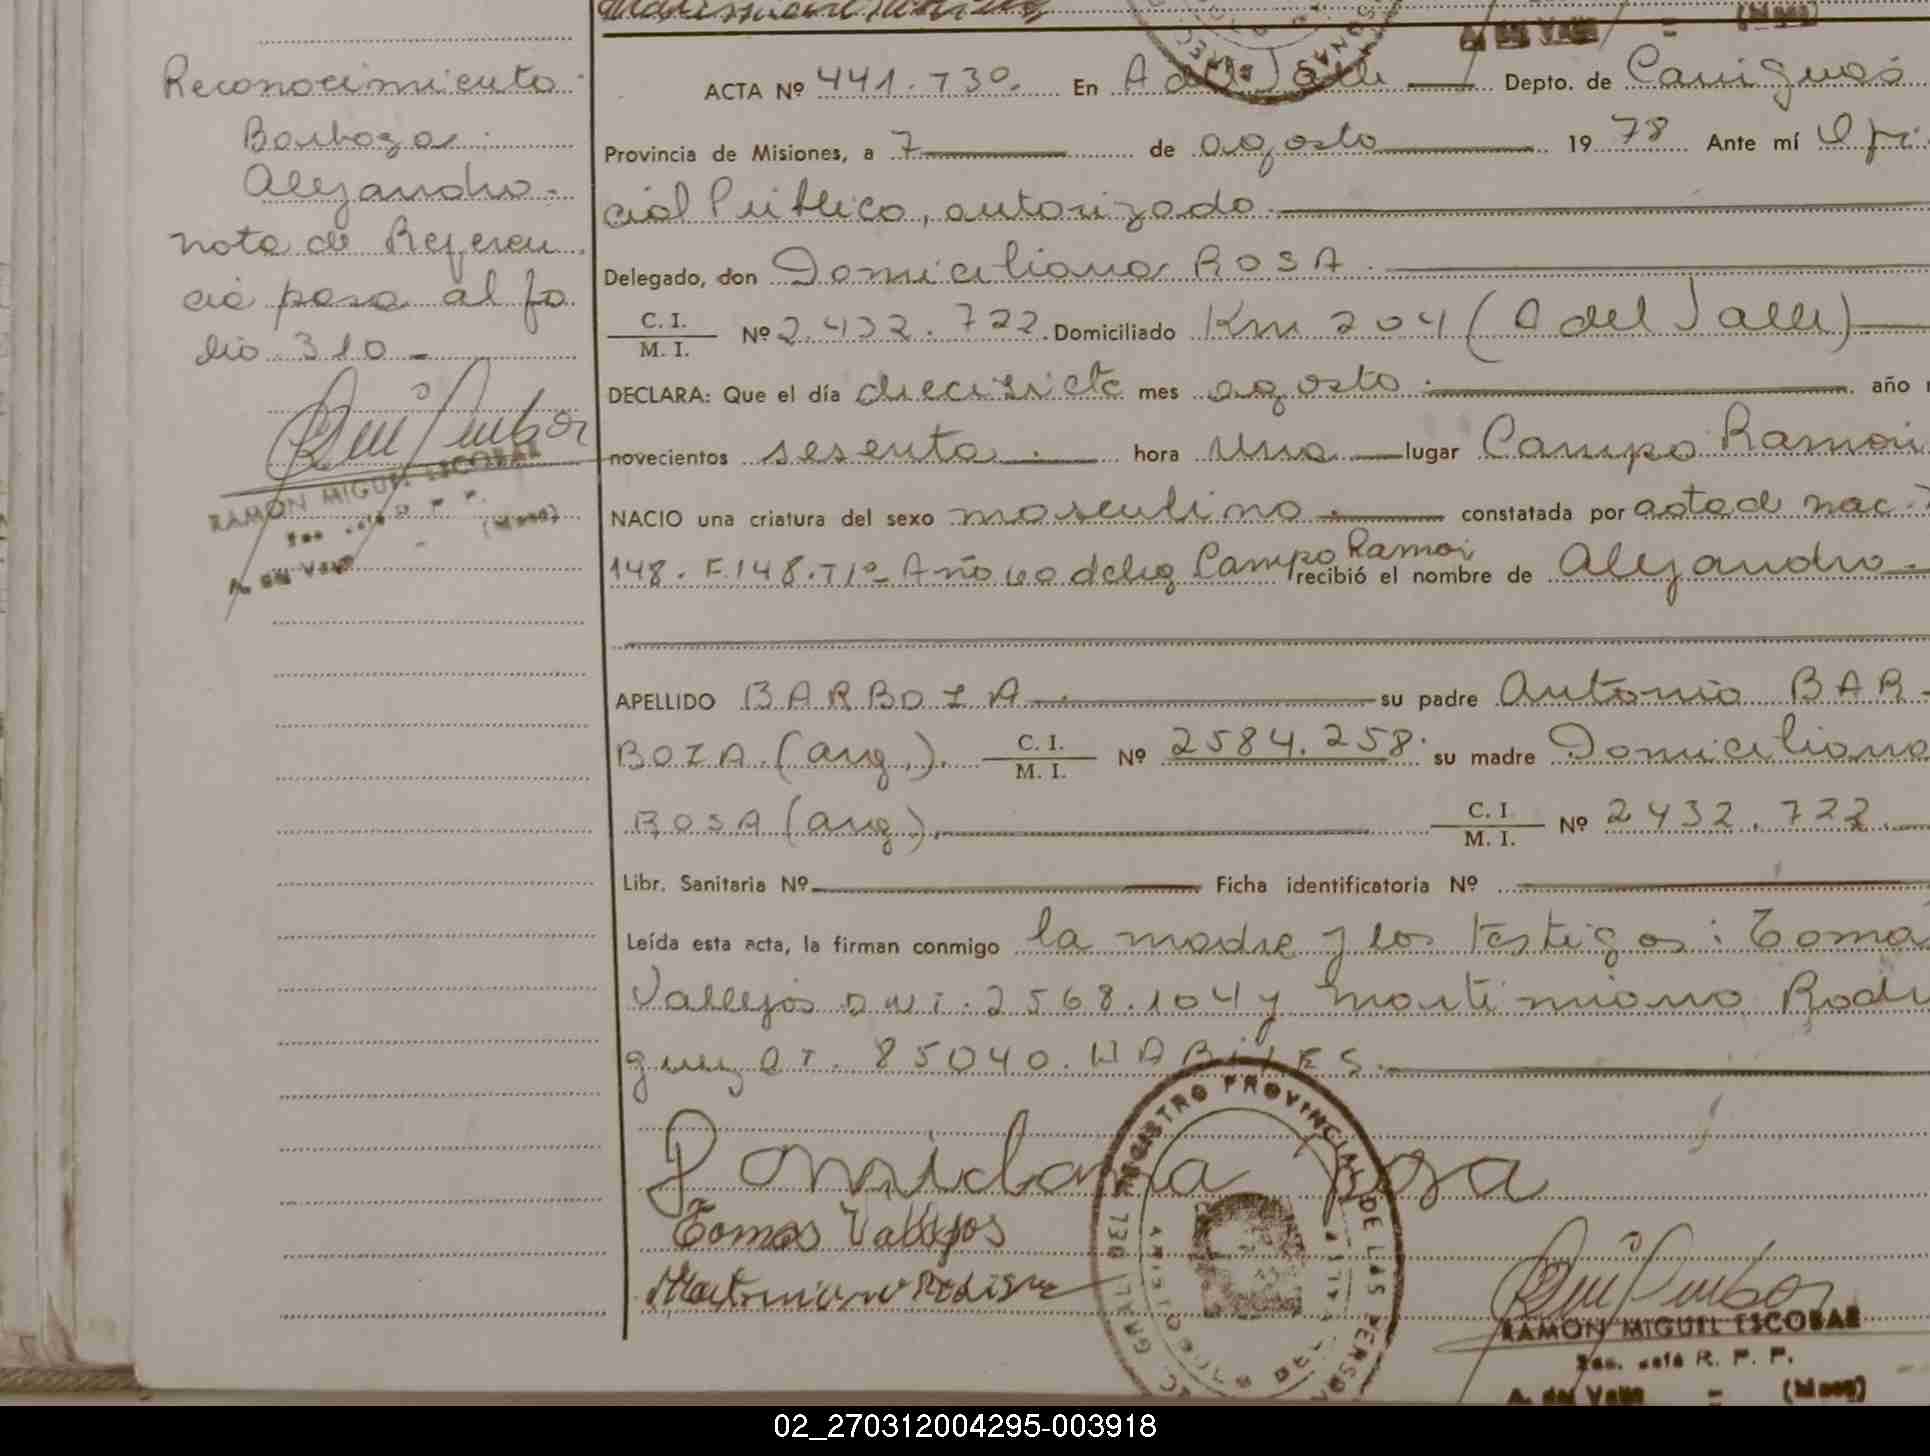 Reconocimiento
Barboza
Alejandro.
nota de Referen
cia pasa al fo
lio 310 -
RAMON MIGUEL ESCOBAR
(Mnes)
A. del Valle
A. del Valle - (Mnes)
ACTA Nº 441.T3º. En A del Valle Depto. de Cainguás
Provincia de Misiones, a 7 de agosto 1978 Ante mí Ofi
cial Público, autorizado.
Delegado, don Domiciliana ROSA.
C. I. / M. I. Nº 2.432.722. Domiciliado Km 204 (A del Valle)
DECLARA: Que el día diecisiete mes agosto. año
novecientos sesenta. hora una lugar Campo Ramón
NACIO una criatura del sexo masculino. constatada por acta de nac.
148. F.148.T1º Año 60 del Campo Ramón recibió el nombre de Alejandro.
APELLIDO BARBOZA. su padre Antonio BAR-
BOZA (arg.). C. I. / M. I. Nº 2584.258. su madre Domiciliana
ROSA (arg.). C. I. / M. I. Nº 2432.722.
Libr. Sanitaria Nº Ficha identificatoria Nº
Leída esta acta, la firman conmigo la madre y los testigos: Tomá
Vallejos DNI. 2568.104 y Martimiano Rodri
guez CI. 85040. HABILES.
Domiciliana Rosa
Tomas Vallejos
REGISTRO PROVINCIAL DE LAS PERSON
RAMON MIGUEL ESCOBAR
Sec. Jefe R. P. P.
A. del Valle - (Mnes)
02_270312004295-003918